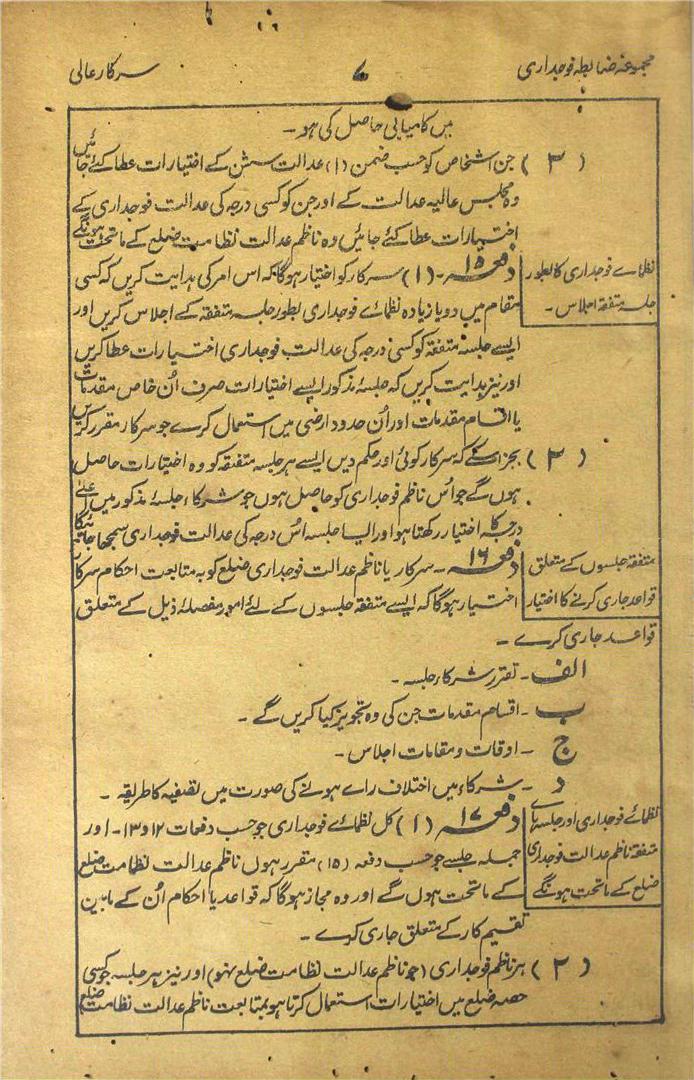 مجموعہ ضابطہ فوجداری
۷
سرکار عالی
میں کامیابی حاصل کی ہو ۔
( ۳ ) جن اشخاص کو حسب ضمن (۱) عدالت سشن کے اختیارات عطا کئے جائیں
وہ مجلس عالیہ عدالت کے اور جن کو کسی درجہ کی عدالت فوجداری کے
اختیارات عطا کئے جائیں وہ ناظم عدالت نظامت ضلع کے ماتحت ہونگے
نظمائے فوجداری کا بطور
جلسہ متفقہ اجلاس ۔
دفعہ ۱۵ ۔ (۱) سرکار کو اختیار ہوگا کہ اس امر کی ہدایت کریں کہ کسی
مقام میں دو یا زیادہ نظمائے فوجداری بطور جلسہ متفقہ کے اجلاس کریں اور
ایسے جلسہ متفقہ کو کسی درجہ کی عدالت فوجداری اختیارات عطا کریں
اور نیز ہدایت کریں کہ جلسۂ مذکور ایسے اختیارات صرف اُن خاص مقدمات
یا اقسام مقدمات اور اُن حدود ارضی میں استعمال کرے جو سرکار مقرر کریں
( ۲ ) بجز اسکے کہ سرکار کوئی اور حکم دیں ایسے ہر جلسہ متفقہ کو وہ اختیارات حاصل
ہوں گے جو اُس ناظم فوجداری کو حاصل ہوں جو شرکاء جلسۂ مذکور میں اعلیٰ
درجہ کا اختیار رکھتا ہو اور ایسا جلسہ اُس درجہ کی عدالت فوجداری سمجھا جائیگا
متفقہ جلسوں کے متعلق
قواعد جاری کرنے کا اختیار
دفعہ ۱۶ ۔ سرکار یا ناظم عدالت فوجداری ضلع کو بہ متابعت احکام سرکار
اختیار ہوگا کہ ایسے متفقہ جلسوں کے لئے امور مفصلۂ ذیل کے متعلق
قواعد جاری کرے ۔
الف ۔ تقرر شرکاء جلسہ ۔
ب ۔ اقسام مقدمات جن کی وہ تجویز کیا کریں گے ۔
ج ۔ اوقات و مقامات اجلاس ۔
د ۔ شرکاء میں اختلاف رائے ہونے کی صورت میں تصفیہ کا طریقہ ۔
نظمائے فوجداری اور جلسہ ہائے
متفقہ ناظم عدالت فوجداری
ضلع کے ماتحت ہونگے
دفعہ ۱۷ (۱) کل نظمائے فوجداری جو حسب دفعات ۱۲ و ۱۳ ۔ اور
جملہ جلسے جو حسب دفعہ (۱۵) مقرر ہوں ناظم عدالت نظامت ضلع
کے ماتحت ہوں گے اور وہ مجاز ہوگا کہ قواعد یا احکام اُن کے مابین
تقسیم کار کے متعلق جاری کرے ۔
( ۲ ) ہر ناظم فوجداری (جو ناظم عدالت نظامت ضلع نہو) اور نیز ہر جلسہ جو کسی
حصہ ضلع میں اختیارات استعمال کرتا ہو بمتابعت ناظم عدالت نظامت ضلع